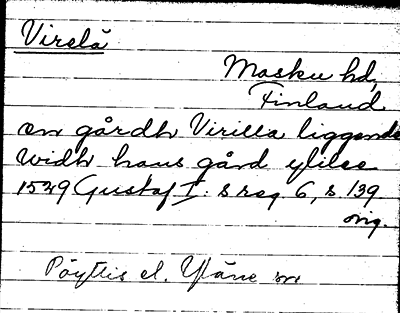 Virelä
Masku hd,
Finland
en gårdh Virilla liggende
widh hans gård ylilee
1529 Gustaf I: s reg. 6, s. 139
orig.
Pöytis el. Yläne sn